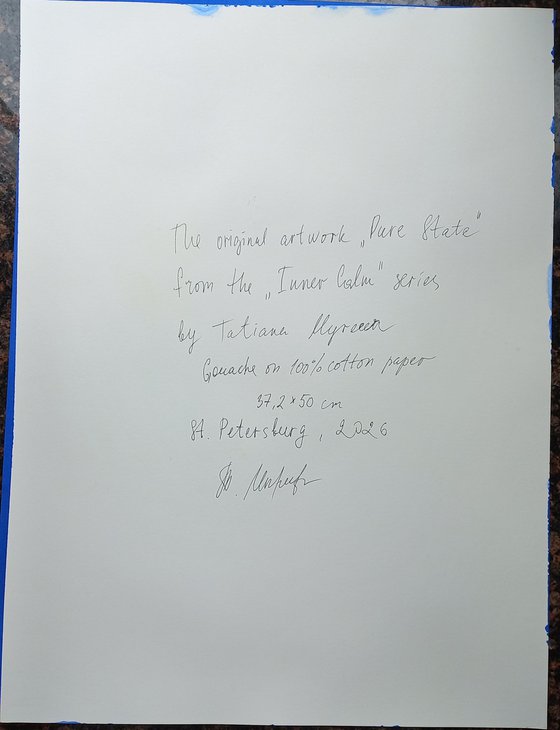 The original artwork „Pure State"
from the „Inner Calm" series
by Tatiana
Gouache on 100% cotton paper
37,2 × 50 cm
St. Petersburg, 2026